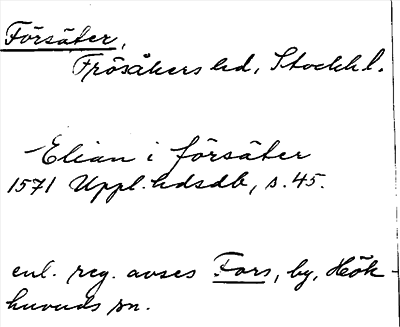 Försäter,
Frösåkers hd, Stockh l.
Elian i försäter
1571 Uppl. hdsdb, s. 45.
enl. reg. avses Fors, by, Hök-
huvuds sn.